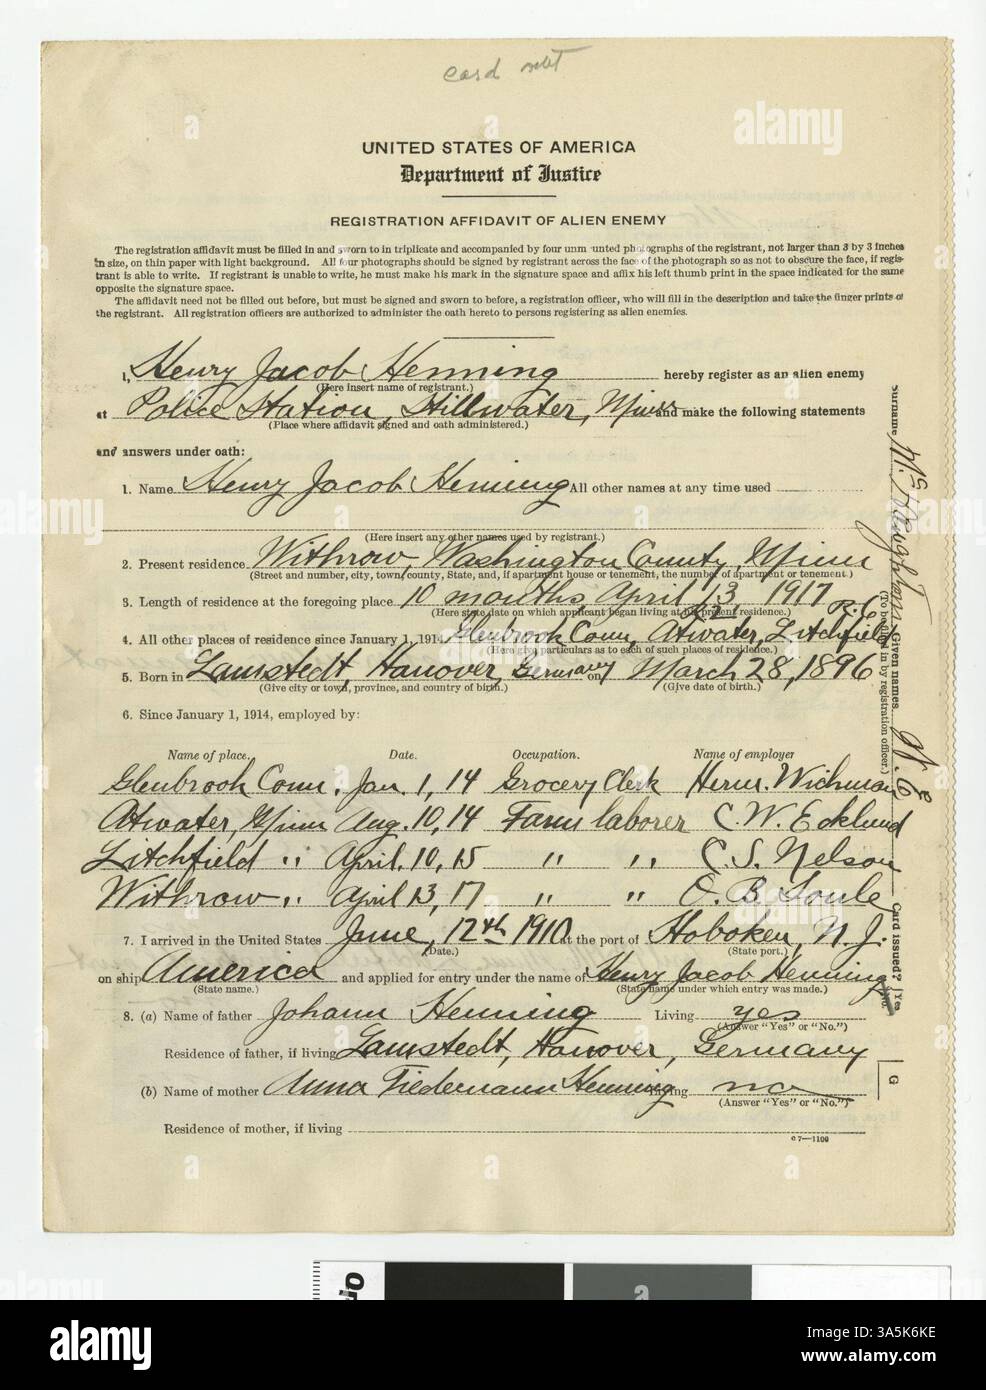 card not
UNITED STATES OF AMERICA
Department of Justice
REGISTRATION AFFIDAVIT OF ALIEN ENEMY
The registration affidavit must be filled in and sworn to in triplicate and accompanied by four unmounted photographs of the registrant, not larger than 3 by 3 inches
in size, on thin paper with light background. All four photographs should be signed by registrant across the face of the photograph so as not to obscure the face, if regis-
trant is able to write. If registrant is unable to write, he must make his mark in the signature space and affix his left thumb print in the space indicated for the same
opposite the signature space.
The affidavit need not be filled out before, but must be signed and sworn to before, a registration officer, who will fill in the description and take the finger prints of
the registrant. All registration officers are authorized to administer the oath hereto to persons registering as alien enemies.
I, Henry Jacob Henning hereby register as an alien enemy
(Here insert name of registrant.)
at Police Station, Stillwater, Minn and make the following statements
(Place where affidavit signed and oath administered.)
and answers under oath:
1. Name Henry Jacob Henning All other names at any time used
(Here insert any other names used by registrant.)
2. Present residence Withrow, Washington County, Minn
(Street and number, city, town, county, State, and, if apartment house or tenement, the number of apartment or tenement.)
3. Length of residence at the foregoing place 10 months, April 13, 1917
(Here state date on which applicant began living at his present residence.)
R.2 R.6
4. All other places of residence since January 1, 1914 Glenbrook Conn, Atwater, Litchfield
(Here give particulars as to each of such places of residence.)
5. Born in Lamstedt, Hanover, Germany on March 28, 1896
(Give city or town, province, and country of birth.) (Give date of birth.)
6. Since January 1, 1914, employed by:
Name of place. Date. Occupation. Name of employer
Glenbrook Conn. Jan. 1, 14 Grocery Clerk Herm. Wichman
Atwater, Minn Aug. 10, 14 Farm laborer C. W. Ecklund
Litchfield " April. 10, 15 " " C. S. Nelson
Withrow " April 13, 17 " " O. B. Soule
7. I arrived in the United States June, 12th 1910 at the port of Hoboken, N. J.
(Date.) (State port.)
on ship America and applied for entry under the name of Henry Jacob Henning
(State name.) (State name under which entry was made.)
8. (a) Name of father Johann Henning Living yes
(Answer "Yes" or "No.")
Residence of father, if living Lamstedt, Hanover, Germany
(b) Name of mother Anna Tiedemann Henning Living no
(Answer "Yes" or "No.")
Residence of mother, if living
C 7—1100
Surname McNaughton Given names. W. E
(To be filled in by registration officer.)
Card issued? Yes No
G
alamy
Image ID: 3A5K6KE
www.alamy.com